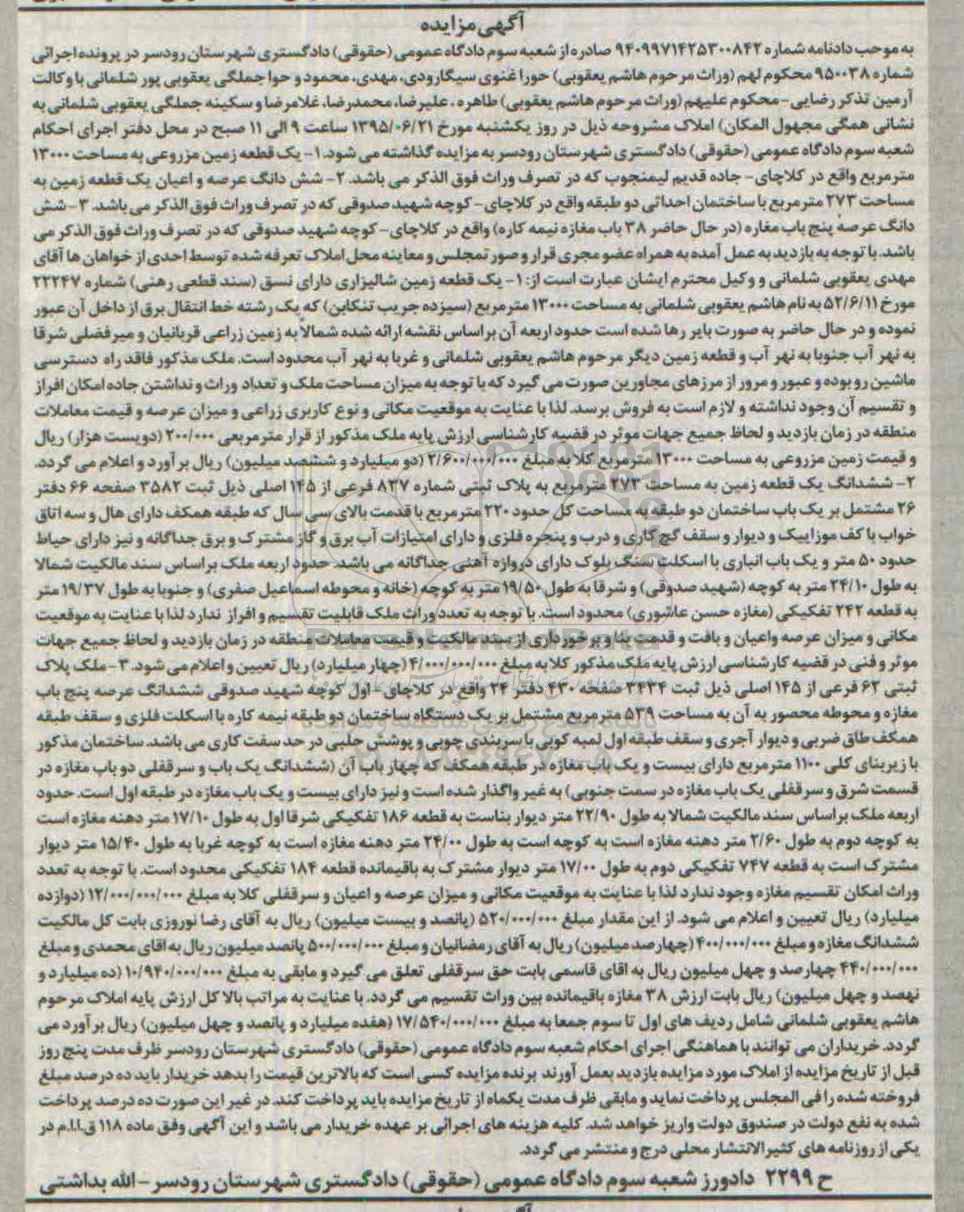 آگهی مزایده
به موجب دادنامه شماره ۹۴۰۹۹۷۱۴۲۵۳۰۰۸۴۲ صادره از شعبه سوم دادگاه عمومی (حقوقی) دادگستری شهرستان رودسر در پرونده اجرائی
شماره ۹۵۰۰۳۸ محکوم لهم (وراث مرحوم هاشم یعقوبی) حورا غنوی سیگارودی، مهدی، محمود و حوا جملگی یعقوبی پور شلمانی با وکالت
آرمین تذکر رضایی - محکوم علیهم (وراث مرحوم هاشم یعقوبی) طاهره، علیرضا، محمدرضا، غلامرضا و سکینه جملگی یعقوبی شلمانی به
نشانی همگی مجهول المکان) املاک مشروحه ذیل در روز یکشنبه مورخ ۱۳۹۵/۰۶/۲۱ ساعت ۹ الی ۱۱ صبح در محل دفتر اجرای احکام
شعبه سوم دادگاه عمومی (حقوقی) دادگستری شهرستان رودسر به مزایده گذاشته می شود. ۱- یک قطعه زمین مزروعی به مساحت ۱۳۰۰۰
مترمربع واقع در کلاچای- جاده قدیم لیمنجوب که در تصرف وراث فوق الذکر می باشد. ۲- شش دانگ عرصه و اعیان یک قطعه زمین به
مساحت ۲۷۳ مترمربع با ساختمان احداثی دو طبقه واقع در کلاچای- کوچه شهید صدوقی که در تصرف وراث فوق الذکر می باشد. ۳- شش
دانگ عرصه پنج باب مغازه (در حال حاضر ۳۸ باب مغازه نیمه کاره) واقع در کلاچای- کوچه شهید صدوقی که در تصرف وراث فوق الذکر می
باشد. با توجه به بازدید به عمل آمده به همراه عضو مجری قرار و صورتمجلس و معاینه محل املاک تعرفه شده توسط احدی از خواهان ها آقای
مهدی یعقوبی شلمانی و وکیل محترم ایشان عبارت است از: ۱- یک قطعه زمین شالیزاری دارای نسق (سند قطعی رهنی) شماره ۲۲۲۴۷
مورخ ۵۲/۶/۱۱ به نام هاشم یعقوبی شلمانی به مساحت ۱۳۰۰۰ مترمربع (سیزده جریب تنکابن) که یک رشته خط انتقال برق از داخل آن عبور
نموده و در حال حاضر به صورت بایر رها شده است حدود اربعه آن براساس نقشه ارائه شده شمالاً به زمین زراعی قربانیان و میرفضلی شرقا
به نهر آب جنوبا به نهر آب و قطعه زمین دیگر مرحوم هاشم یعقوبی شلمانی و غربا به نهر آب محدود است. ملک مذکور فاقد راه دسترسی
ماشین رو بوده و عبور و مرور از مرزهای مجاورین صورت می گیرد که با توجه به میزان مساحت ملک و تعداد وراث و نداشتن جاده امکان افراز
و تقسیم آن وجود نداشته و لازم است به فروش برسد. لذا با عنایت به موقعیت مکانی و نوع کاربری زراعی و میزان عرصه و قیمت معاملات
منطقه در زمان بازدید و لحاظ جمیع جهات موثر در قضیه کارشناسی ارزش پایه ملک مذکور از قرار مترمربعی ۲۰۰/۰۰۰ (دویست هزار) ریال
و قیمت زمین مزروعی به مساحت ۱۳۰۰۰ مترمربع کلا به مبلغ ۲/۶۰۰/۰۰۰/۰۰۰ (دو میلیارد و ششصد میلیون) ریال برآورد و اعلام می گردد.
۲- ششدانگ یک قطعه زمین به مساحت ۲۷۳ مترمربع به پلاک ثبتی شماره ۸۳۷ فرعی از ۱۴۵ اصلی ذیل ثبت ۳۵۸۲ صفحه ۶۶ دفتر
۲۶ مشتمل بر یک باب ساختمان دو طبقه به مساحت کل حدود ۲۲۰ مترمربع با قدمت بالای سی سال که طبقه همکف دارای هال و سه اتاق
خواب با کف موزاییک و دیوار و سقف گچ کاری و درب و پنجره فلزی و دارای امتیازات آب برق و گاز مشترک و برق جداگانه و نیز دارای حیاط
حدود ۵۰ متر و یک باب انباری با اسکلت سنگ بلوک دارای دروازه آهنی جداگانه می باشد. حدود اربعه ملک براساس سند مالکیت شمالا
به طول ۲۴/۱۰ متر به کوچه (شهید صدوقی) و شرقا به طول ۱۹/۵۰ متر به کوچه (خانه و محوطه اسماعیل صفری) و جنوبا به طول ۱۹/۳۷ متر
به قطعه ۲۴۲ تفکیکی (مغازه حسن عاشوری) محدود است. با توجه به تعدد وراث ملک قابلیت تقسیم و افراز ندارد لذا با عنایت به موقعیت
مکانی و میزان عرصه واعیان و بافت و قدمت بنا و برخورداری از سند مالکیت و قیمت معاملات منطقه در زمان بازدید و لحاظ جمیع جهات
موثر و فنی در قضیه کارشناسی ارزش پایه ملک مذکور کلا به مبلغ ۴/۰۰۰/۰۰۰/۰۰۰ (چهار میلیارد) ریال تعیین و اعلام می شود. ۳- ملک پلاک
ثبتی ۶۲ فرعی از ۱۴۵ اصلی ذیل ثبت ۳۴۳۴ صفحه ۴۳۰ دفتر ۲۴ واقع در کلاچای- اول کوچه شهید صدوقی ششدانگ عرصه پنج باب
مغازه و محوطه محصور به آن به مساحت ۵۳۹ مترمربع مشتمل بر یک دستگاه ساختمان دو طبقه نیمه کاره با اسکلت فلزی و سقف طبقه
همکف طاق ضربی و دیوار آجری و سقف طبقه اول لمبه کوبی با سربندی چوبی و پوشش حلبی در حد سفت کاری می باشد. ساختمان مذکور
با زیربنای کلی ۱۱۰۰ مترمربع دارای بیست و یک باب مغازه در طبقه همکف که چهار باب آن (ششدانگ یک باب و سرقفلی دو باب مغازه در
قسمت شرق و سرقفلی یک باب مغازه در سمت جنوبی) به غیر واگذار شده است و نیز دارای بیست و یک باب مغازه در طبقه اول است. حدود
اربعه ملک براساس سند مالکیت شمالا به طول ۲۲/۹۰ متر دیوار بناست به قطعه ۱۸۶ تفکیکی شرقا اول به طول ۱۷/۱۰ متر دهنه مغازه است
به کوچه دوم به طول ۲/۶۰ متر دهنه مغازه است به کوچه است به طول ۲۴/۰۰ متر دهنه مغازه است به کوچه غربا به طول ۱۵/۴۰ متر دیوار
مشترک است به قطعه ۷۴۷ تفکیکی دوم به طول ۱۷/۰۰ متر دیوار مشترک به باقیمانده قطعه ۱۸۴ تفکیکی محدود است. با توجه به تعدد
وراث امکان تقسیم مغازه وجود ندارد لذا با عنایت به موقعیت مکانی و میزان عرصه و اعیان و سرقفلی کلا به مبلغ ۱۲/۰۰۰/۰۰۰/۰۰۰ (دوازده
میلیارد) ریال تعیین و اعلام می شود. از این مقدار مبلغ ۵۲۰/۰۰۰/۰۰۰ (پانصد و بیست میلیون) ریال به آقای رضا نوروزی بابت کل مالکیت
ششدانگ مغازه و مبلغ ۴۰۰/۰۰۰/۰۰۰ (چهارصد میلیون) ریال به آقای رمضانیان و مبلغ ۵۰۰/۰۰۰/۰۰۰ پانصد میلیون ریال به اقای محمدی و مبلغ
۴۴۰/۰۰۰/۰۰۰ چهارصد و چهل میلیون ریال به اقای قاسمی بابت حق سرقفلی تعلق می گیرد و مابقی به مبلغ ۱۰/۹۴۰/۰۰۰/۰۰۰ (ده میلیارد و
نهصد و چهل میلیون) ریال بابت ارزش ۳۸ مغازه باقیمانده بین وراث تقسیم می گردد. با عنایت به مراتب بالا کل ارزش پایه املاک مرحوم
هاشم یعقوبی شلمانی شامل ردیف های اول تا سوم جمعا به مبلغ ۱۷/۵۴۰/۰۰۰/۰۰۰ (هفده میلیارد و پانصد و چهل میلیون) ریال برآورد می
گردد. خریداران می توانند با هماهنگی اجرای احکام شعبه سوم دادگاه عمومی (حقوقی) دادگستری شهرستان رودسر ظرف مدت پنج روز
قبل از تاریخ مزایده از املاک مورد مزایده بازدید بعمل آورند برنده مزایده کسی است که بالاترین قیمت را بدهد خریدار باید ده درصد مبلغ
فروخته شده را فی المجلس پرداخت نماید و مابقی ظرف مدت یکماه از تاریخ مزایده باید پرداخت کند. در غیر این صورت ده درصد پرداخت
شده به نفع دولت در صندوق دولت واریز خواهد شد. کلیه هزینه های اجرائی بر عهده خریدار می باشد و این آگهی وفق ماده ۱۱۸ ق.ا.ا.م در
یکی از روزنامه های کثیرالانتشار محلی درج و منتشر می گردد.
ح ۲۲۹۹ دادورز شعبه سوم دادگاه عمومی (حقوقی) دادگستری شهرستان رودسر - الله بداشتی